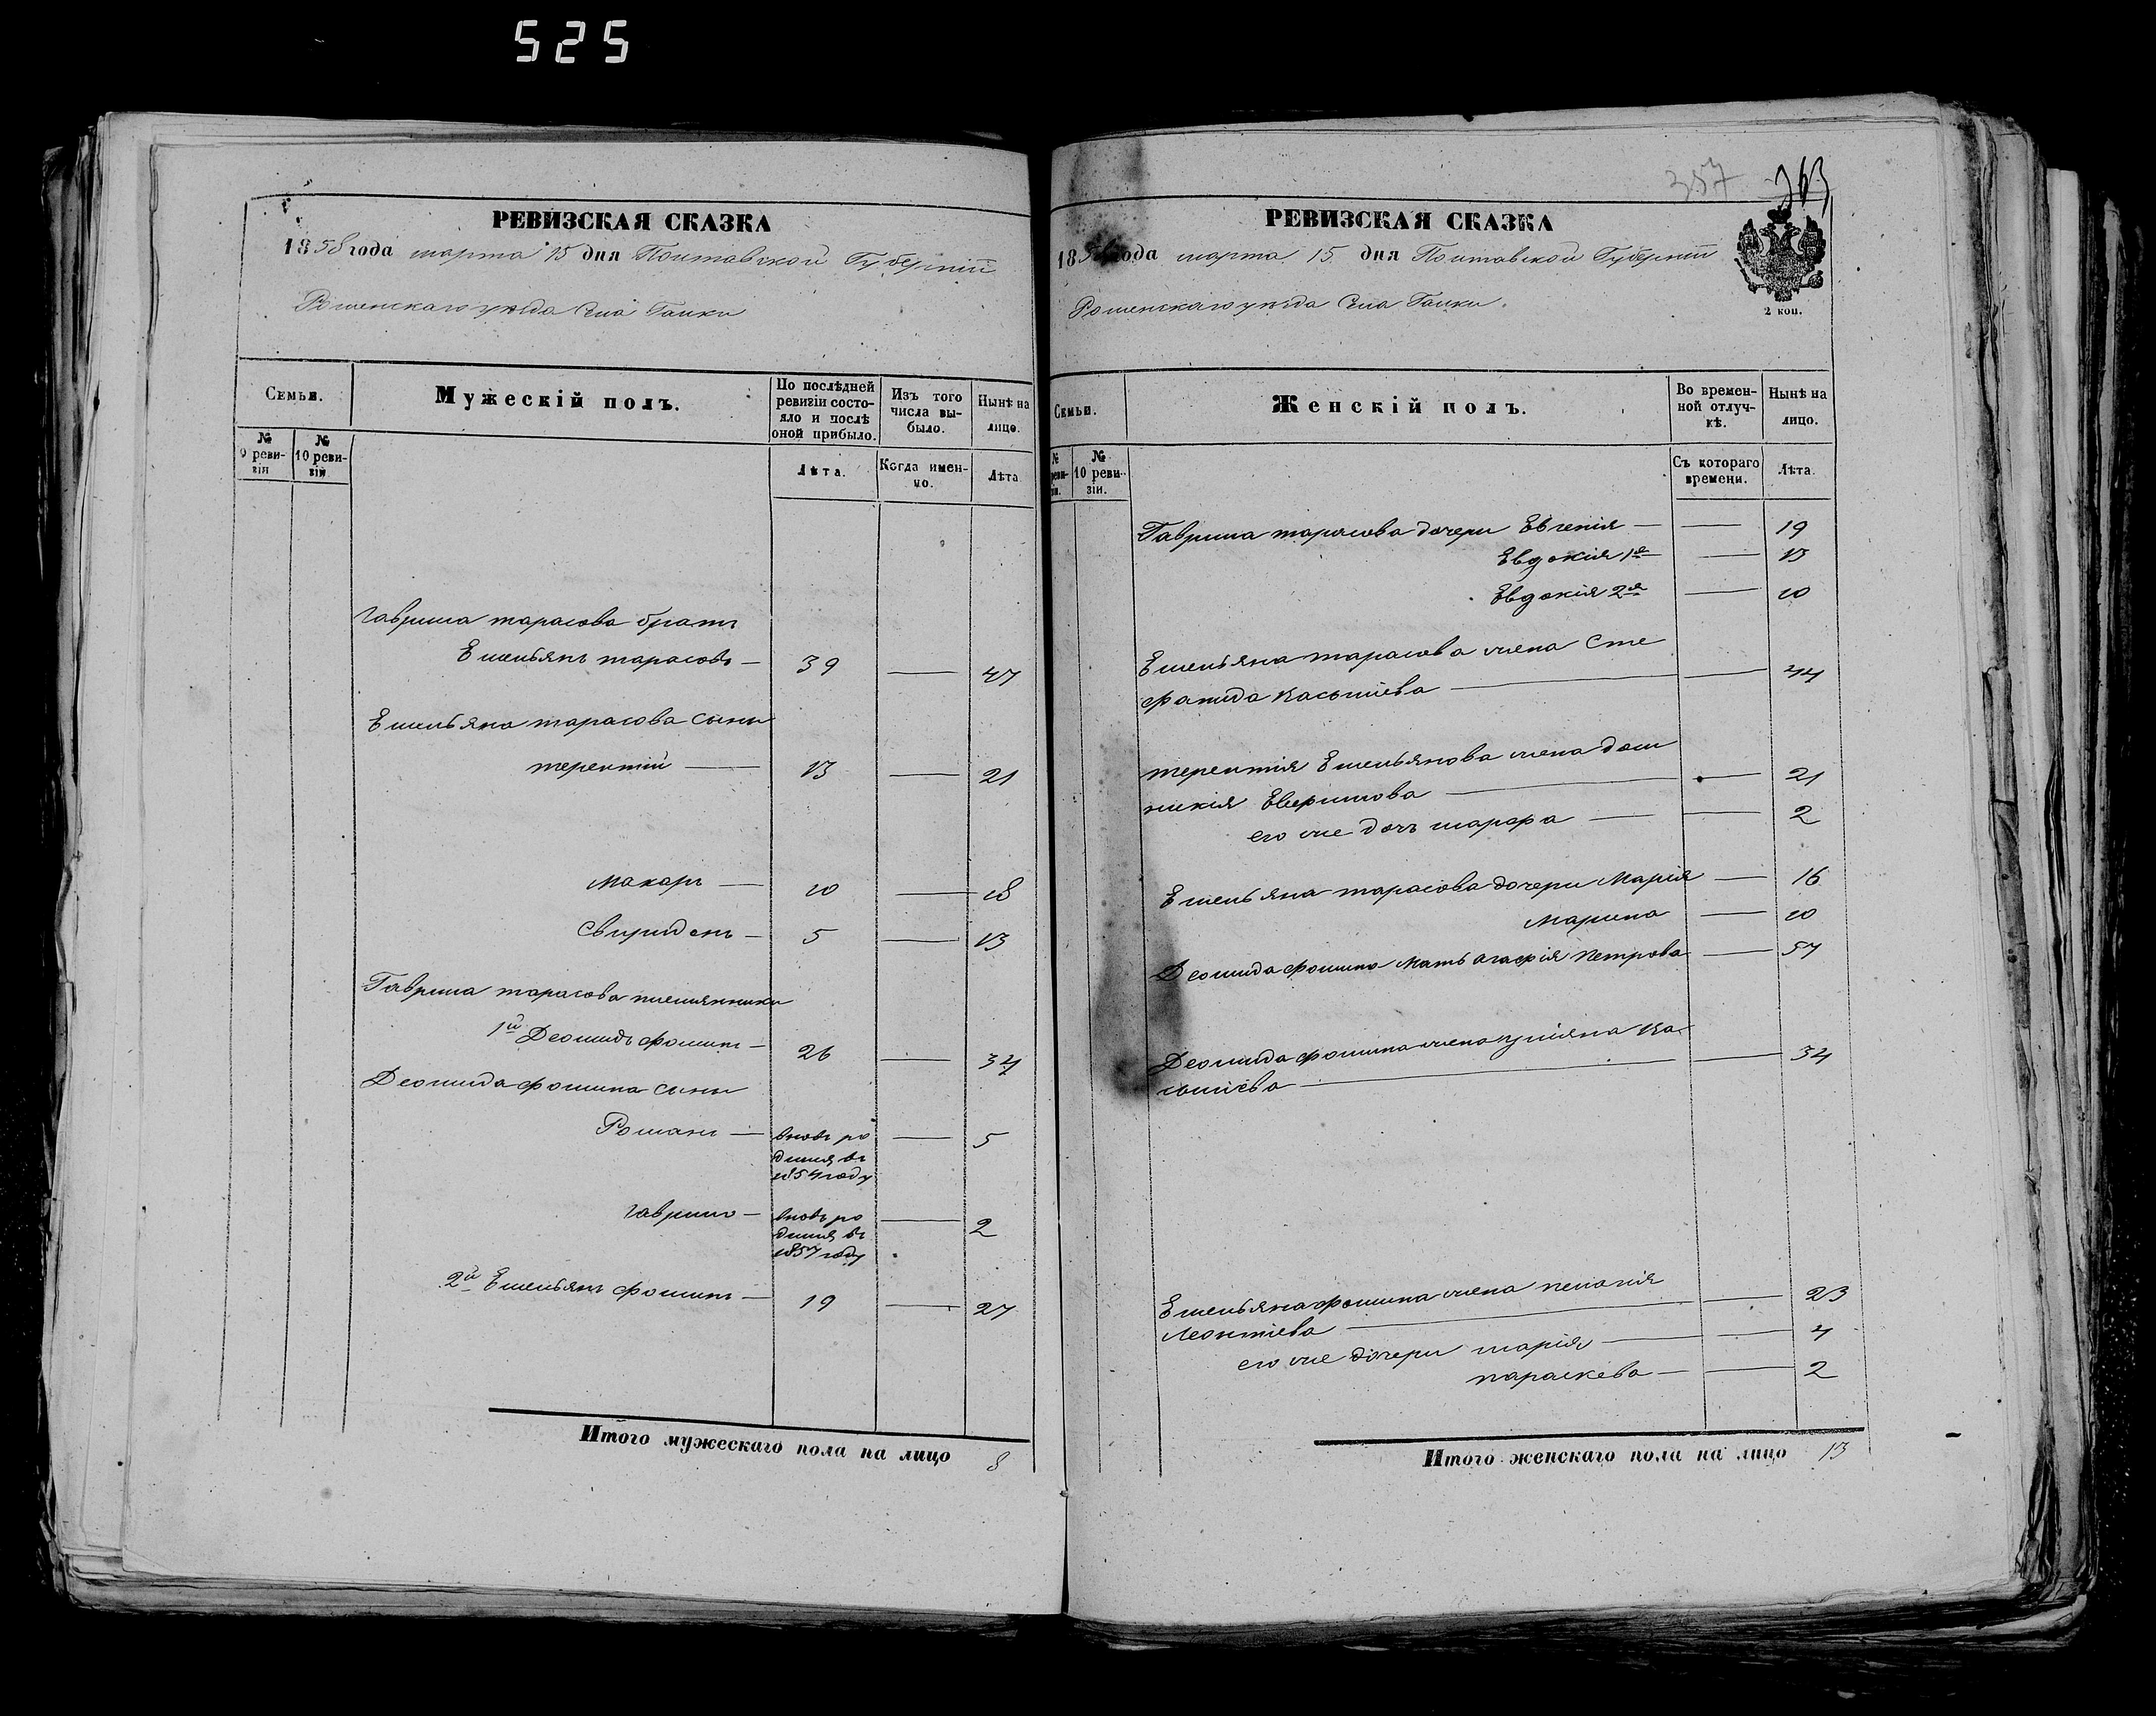 525
РЕВИЗСКАЯ СКАЗКА
1858 года марта 15 дня Полтавской Губерніи
Роменскаго уезда Села Галки
Семьи.
Мужескій полъ.
По послѣдней ревизіи состояло и послѣ оной прибыло.
Изъ того числа выбыло.
Нынѣ на лицо.
№ 9 ревизіи
№ 10 ревизіи
Лѣта.
Когда именно.
Лѣта
Гаврила тарасова братъ
Емельянъ тарасовъ — 39 — 47
Емельяна тарасова сыны
терентій — 13 — 21
Макаръ — 10 — 18
Свиридонъ — 5 — 13
Гаврила тарасова племянники
1й Деомидъ фоминъ — 26 — 34
Деомида фомина сыны
Романъ — вновь ро — 5
дился въ
1854 году
гаврило — вновь ро — 2
дился въ
1857 году
2й Емельянъ фоминъ — 19 — 27
Итого мужескаго пола на лицо 8
357 363
РЕВИЗСКАЯ СКАЗКА
1858 года марта 15 дня Полтавской Губерніи
Роменскаго уезда Села Галки.
2 коп.
Семьи.
Женскій полъ.
Во временной отлучкѣ.
Нынѣ на лицо.
№ ревизіи.
№ 10 ревизіи.
Съ котораго времени.
Лѣта.
Гаврила тарасова дочери Евгенія — — 19
Евдокія 1я — 13
Евдокія 2я — 10
Емельяна тарасова жена Сте
фанида Касьянова — — 44
терентія Емельянова жена дом
никія — — 21
его же дочь марфа — — 2
Емельяна тарасова дочери Марія — 16
Марина — 10
Деомида фомина мать агафія Петрова — 57
Деомида фомина жена уліяна Ка
— — 34
Емельяна фомина жена пелагія
Леонтіева — — 23
его же дочери марія — — 4
параскева — — 2
Итого женскаго пола на лицо 13